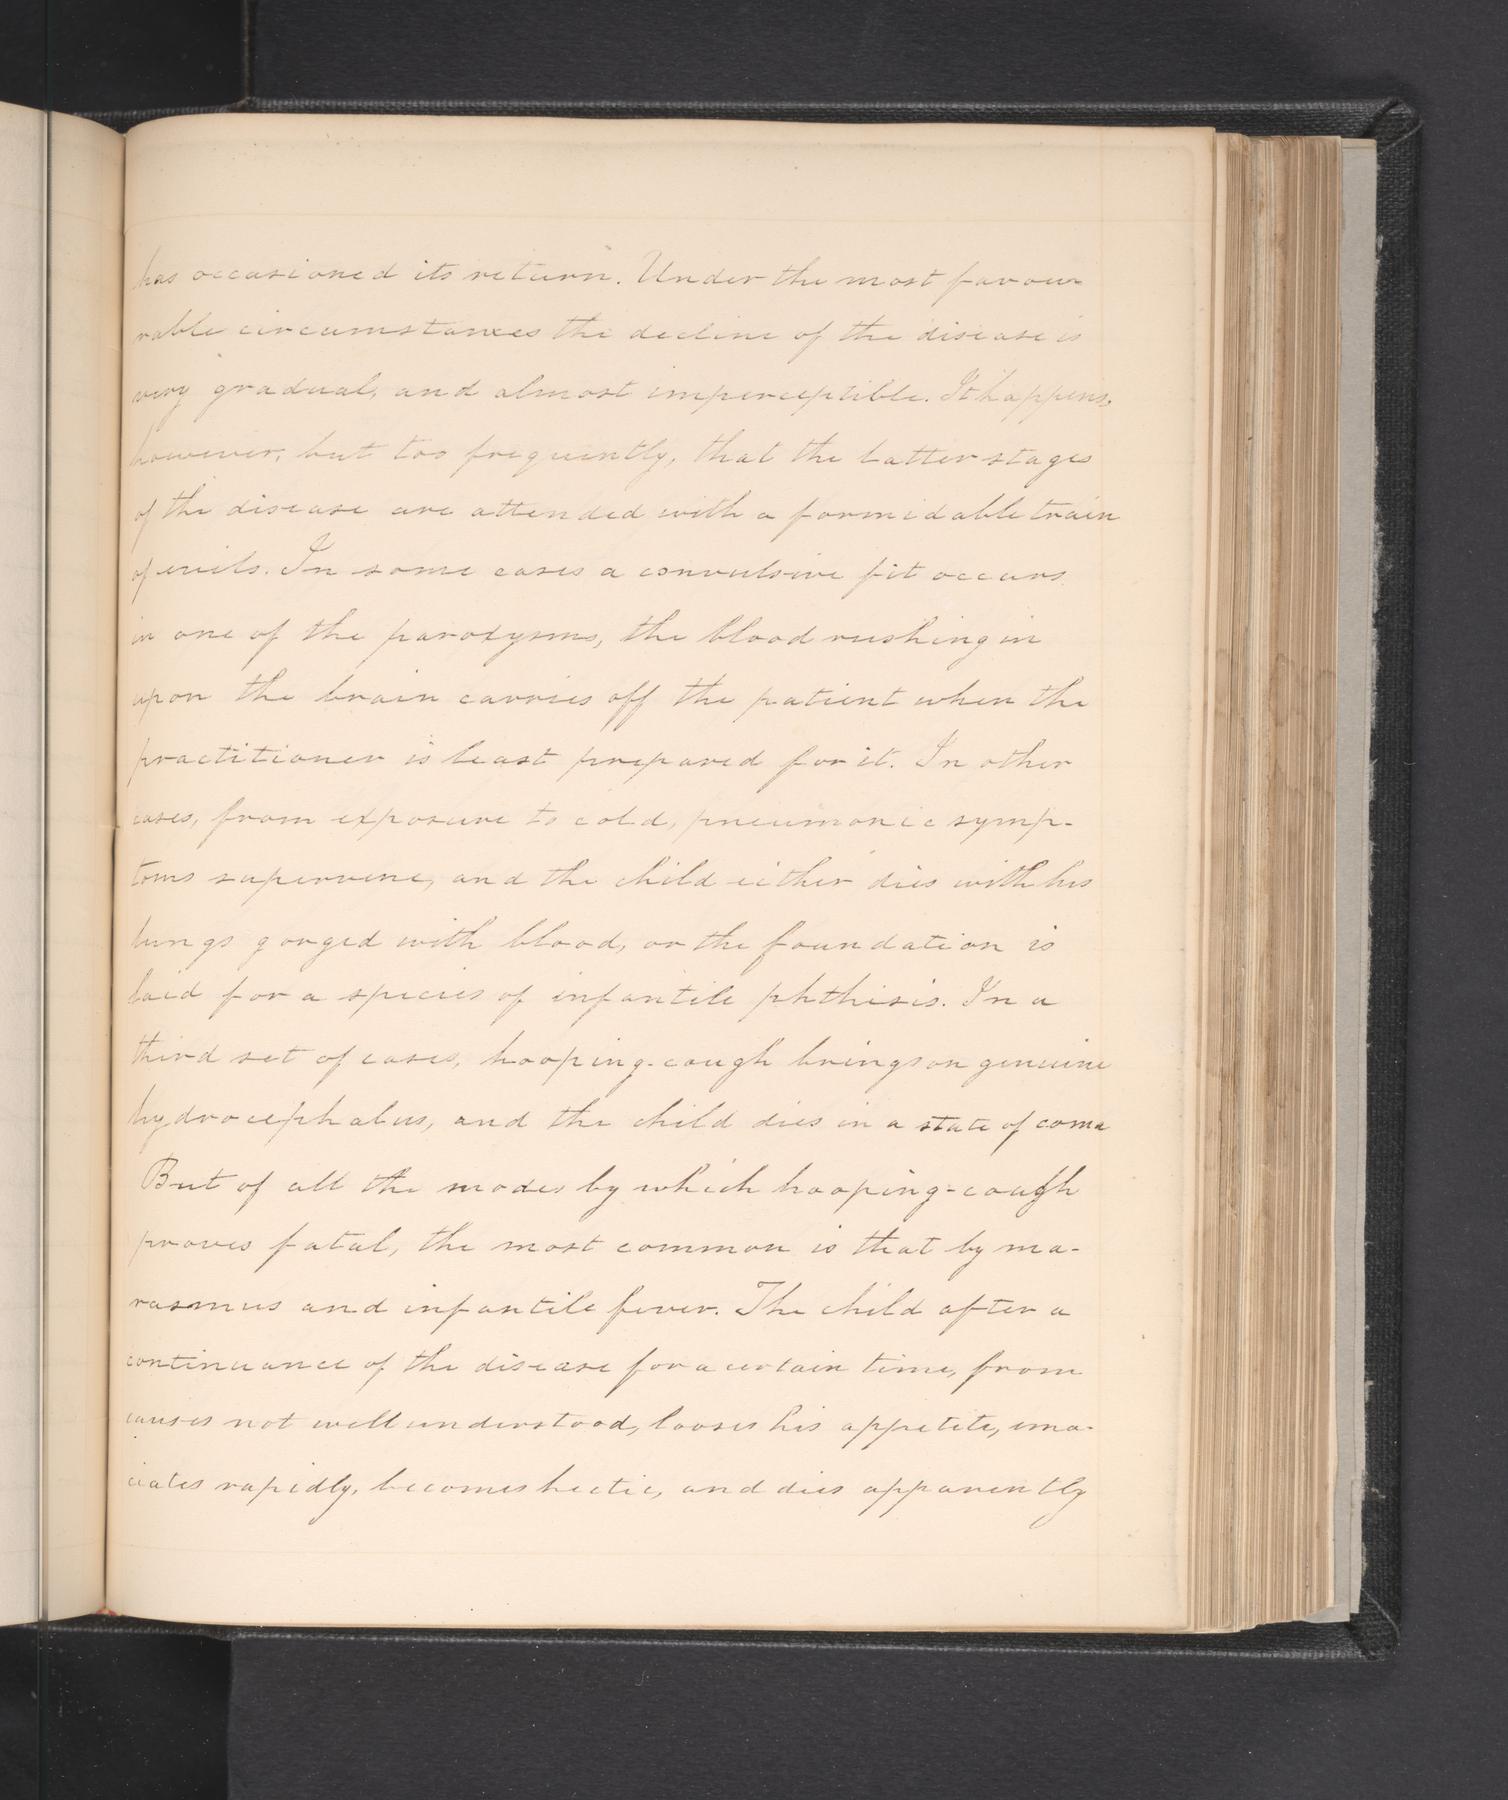 has occasioned its return. Under the most favou-
rable circumstances the decline of the disease is
very gradual, and almost imperceptible. It happens,
however, but too frequently, that the latter stages
of the disease are attended with a formidable train
of evils. In some cases a convulsive fit occurs
in one of the paroxysms, the blood rushing in
upon the brain carries off the patient when the
practitioner is least prepared for it. In other
cases, from exposure to cold, pneumonic symp-
toms supervene, and the child either dies with his
lungs gorged with blood, or the foundation is
laid for a species of infantile phthisis. In a
third set of cases, hooping-cough brings on genuine
hydrocephalus, and the child dies in a state of coma
But of all the modes by which hooping-cough
proves fatal, the most common is that by ma-
rasmus and infantile fever. The child after a
continuance of the disease for a certain time, from
causes not well understood, looses his appetite, ema-
ciates rapidly, becomes hectic, and dies apparently